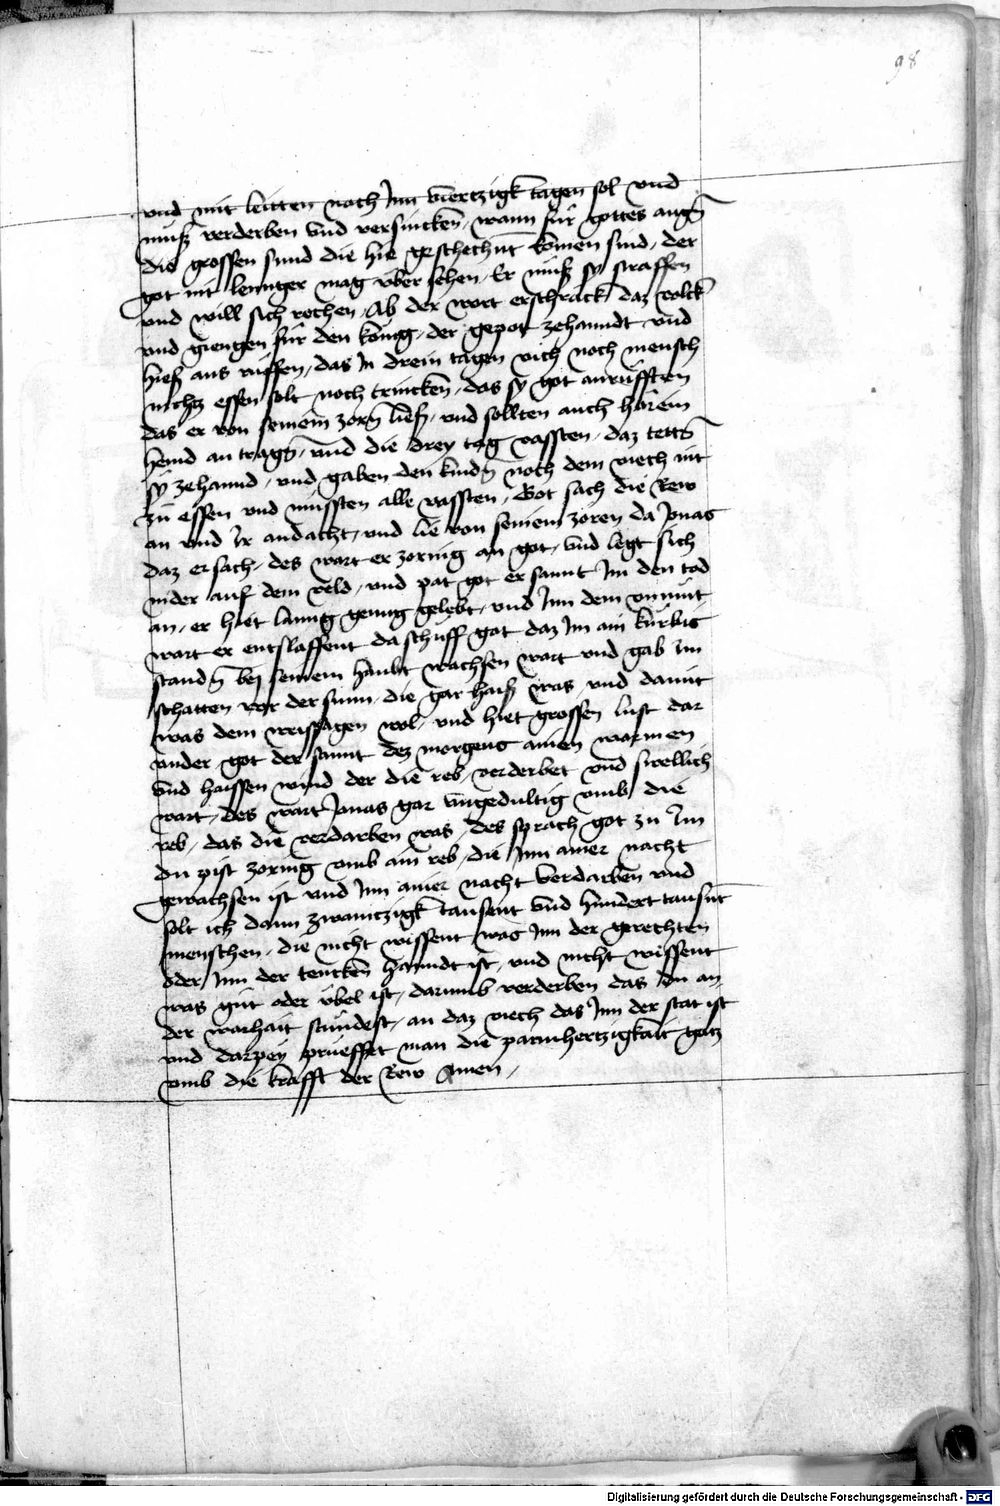 98
vnd mit leutten noch Jnn viertzigk tagen sol vnd
muß verderben vnd versincken / wann für gottes augñ
die grossen sund die hie geschechñt komen sind / der
got nit lennger mag vber sehen / Er muß sy straffen
vnd will sich rechen / Ab der wort erschrack daz volck
vnd giengen für den könig / der gepot zehanndt / vnd
hieß aus rüffen / das In drein tagen vich noch mensch
nichtz essen solt noch trincken / das sy got anrüfften
das er von seinem zorñ ließ / vnd sollten auch härein
hemd an tragñ / vnd die drey tag vassten / daz tettñ
sy zehannd / vnd gaben den kindñ noch dem viech nit
zu essen vnd mussten alle vassten / Got sach die Rew
an vnd Ir andacht / vnd lie von seinem zoren da Jonas
daz ersach / des wart er zornig an got / vnd legt sich
nider auf dem veld / vnd pat got er sannt Im den tod
an / er hiet lanng genug gelebt / vnd Jnn dem vnmüt
wart er entslaffent da schuff got daz Im ain kürbis
standñ bey seinem haubt wachsen wart vnd gab Im
schatten vor der sunn / die gar haiß was / vnd damit
was dem weissagen wol / vnd hiet grossen lust dar
vnder / got der sannt dez morgens ainen warmen
vnd haissen wind der die reb / verderbet vnd swellich
wart / des wart Jonas gar vngedultig vmb die
reb / das die verdarben was / des sprach got zu Im
du pist zornig vmb ain reb / die Jnn ainer nacht
gewachsen ist vnd Jnn ainer nacht verdarben vnd
solt ich dann zwaintzigk tausent vnd hundert tausñt
menschen / die nicht wissent was Jnn der gerechten
oder Jnn der tencken hanndt ist / vnd nicht wissent
was güt oder übel ist / darumb verderben das du an
der warhait stündest / an daz viech das Jnn der stat ist
vnd darpey prueffet man die parmhertzigkait gotz
vmb die krafft der Rew Amen /
Digitalisierung gefördert durch die Deutsche Forschungsgemeinschaft - DFG